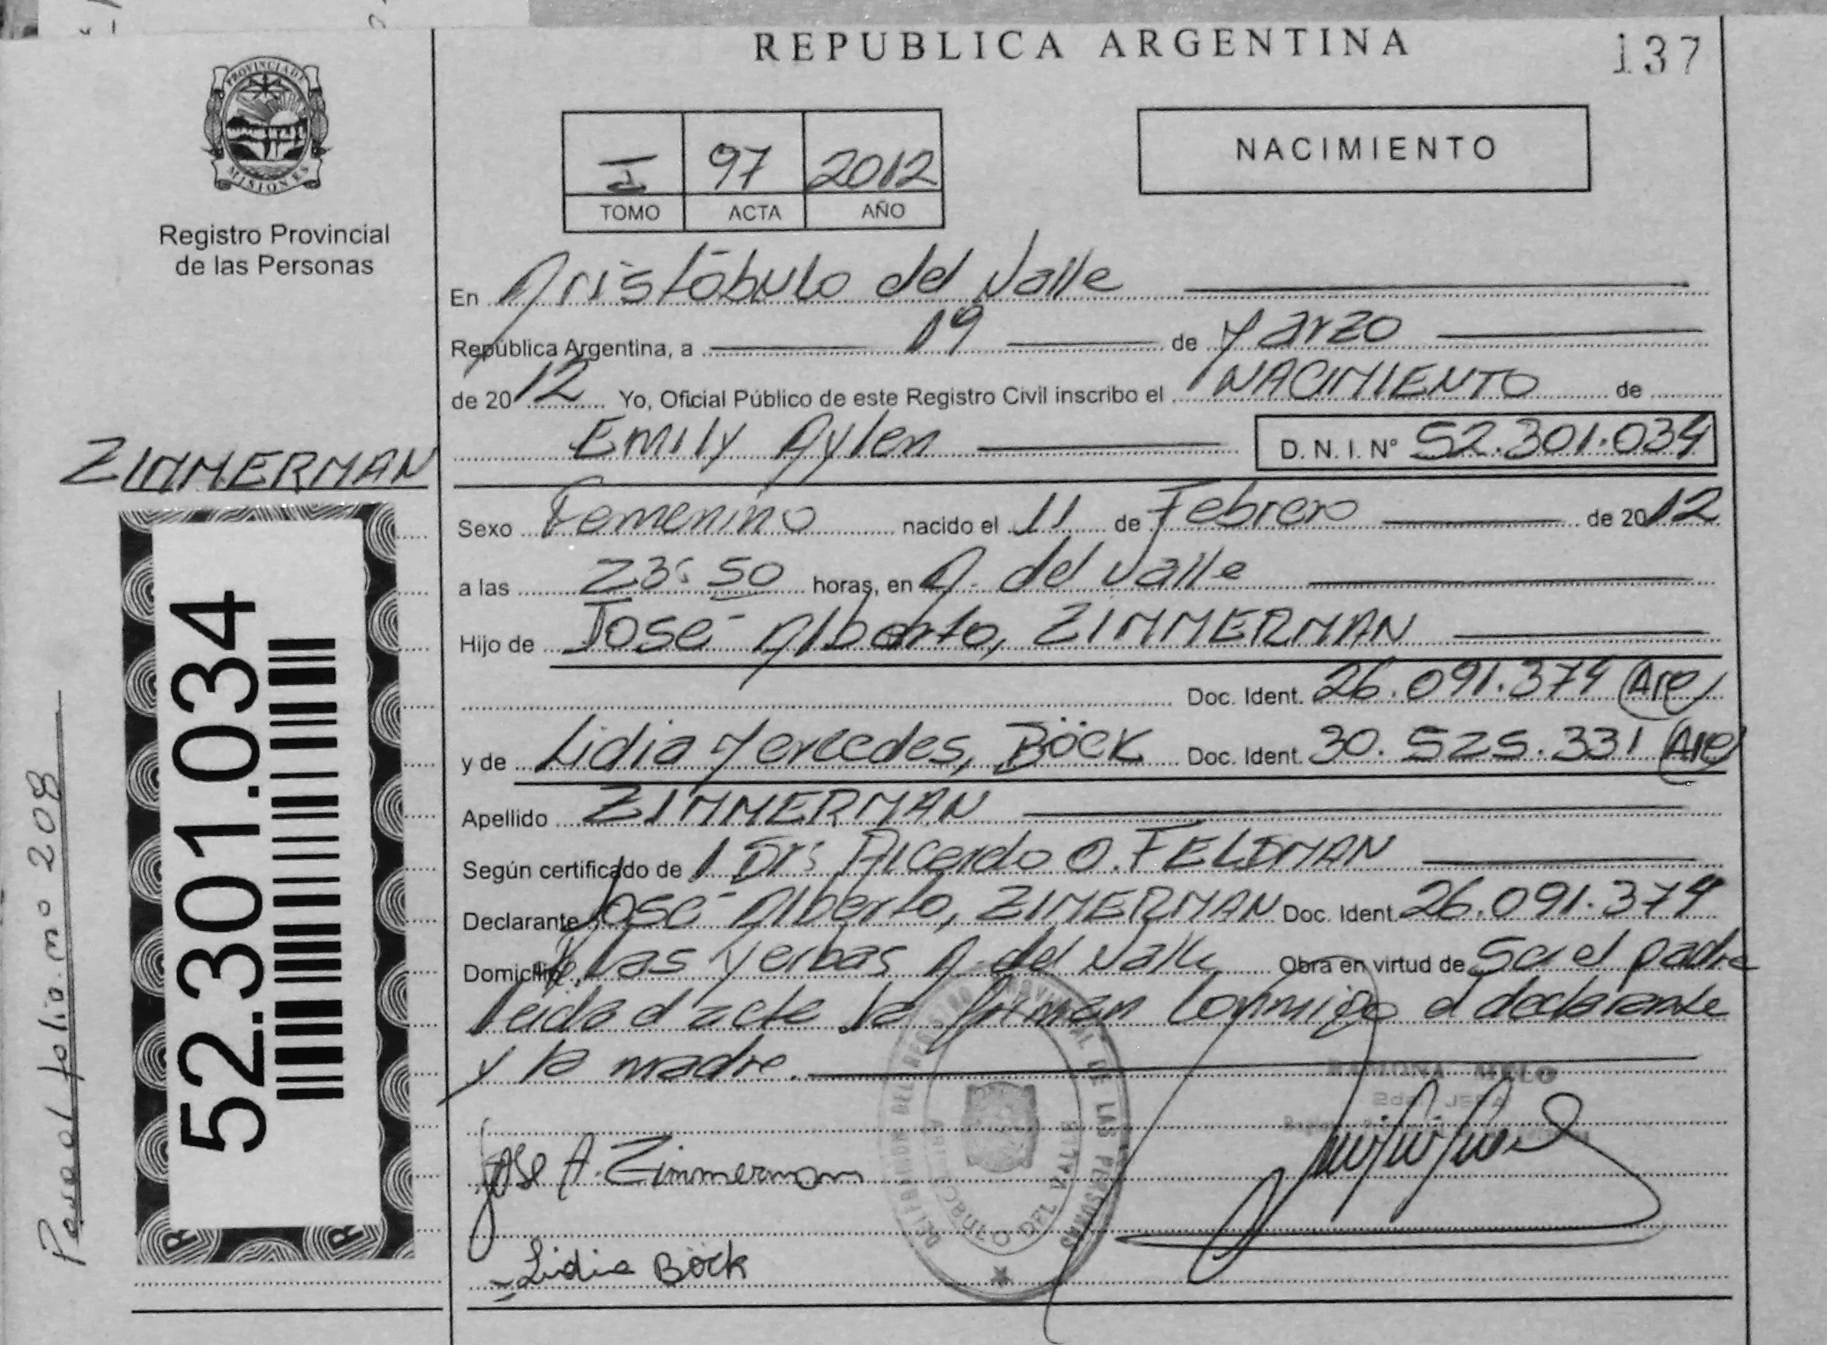 REPUBLICA ARGENTINA
137
PROVINCIA DE MISIONES
Registro Provincial
de las Personas
I 97 2012
TOMO ACTA AÑO
NACIMIENTO
En Aristóbulo del Valle
República Argentina, a 19 de Marzo
de 2012 Yo, Oficial Público de este Registro Civil inscribo el NACIMIENTO de
Emily Aylen D. N. I. N° 52.301.034
ZIMMERMAN
Sexo Femenino nacido el 11 de Febrero de 2012
a las 23:50 horas, en A. del Valle
Hijo de José Alberto, ZIMMERMAN
Doc. Ident. 26.091.374 (Arg)
y de Lidia Mercedes, BÖCK Doc. Ident. 30.525.331 (Arg)
Apellido ZIMMERMAN
Según certificado de Dr: Ricardo O. FELDMAN
Declarante José Alberto, ZIMERMAN Doc. Ident. 26.091.374
Domicilio Las Yerbas A. del Valle Obra en virtud de Ser el padre
leida el acta la firman conmigo el declarante
y la madre.
52.301.034
folio nº 208
RAMONA MELO
Jose A. Zimmermam
Lidia Böck
DELEGACION DEL REGISTRO PROVINCIAL DE LAS PERSONAS
DEL VALLE